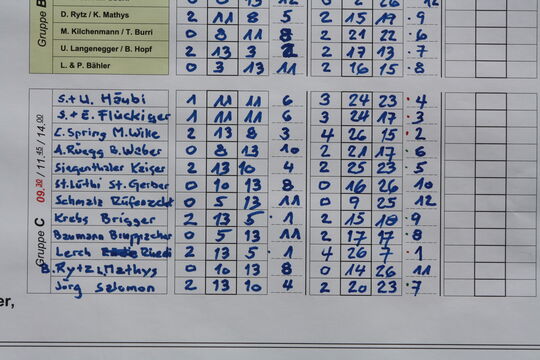 Gruppe B
D. Rytz / K. Mathys 2 11 8 5 2 15 19 9
M. Kilchenmann / T. Burri 0 8 11 8 2 21 22 6
U. Langenegger / B. Hopf 2 13 3 2 2 17 13 7
L. & P. Bähler 0 3 13 11 2 16 15 8
Gruppe C 09.30 / 11.45 / 14.00
S.+U. Häubi 1 11 11 6 3 24 23 4
S.+E. Flückiger 1 11 11 6 3 24 17 3
C. Spring M. Wilke 2 13 8 3 4 26 15 2
A. Rüegg B. Weber 0 8 13 10 2 21 17 6
Siegenthaler Kaiser 2 13 10 4 2 25 23 5
St. Lüthi St. Gerber 0 10 13 8 0 16 26 10
Schmalz 0 5 13 11 0 9 25 12
Krebs Brigger 2 13 5 1 2 15 18 9
Baumann Bruppacher 0 5 13 11 2 17 17 8
Lerch 2 13 5 1 4 26 7 1
B. Rytz L. Mathys 0 10 13 8 0 14 26 11
Jörg Salomon 2 13 10 4 2 20 23 7
er,